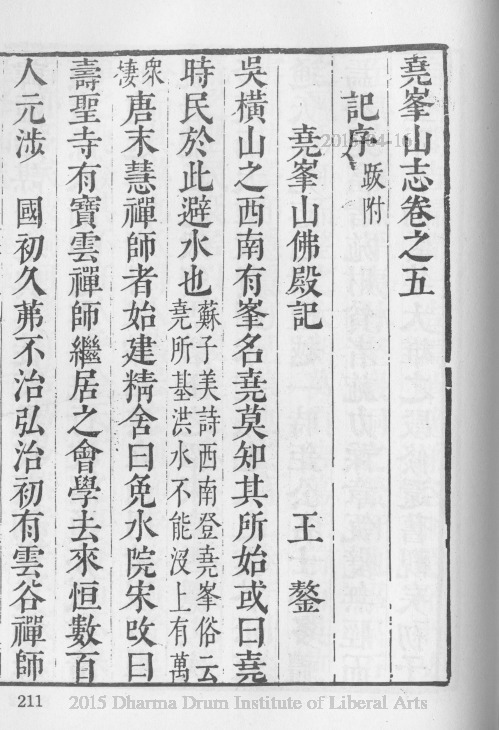 堯峯山志卷之五
記序 跋附
堯峯山佛殿記 王鏊
吳橫山之西南有峯名堯莫知其所始或曰堯
時民於此避水也 蘇子美詩西南登堯峯俗云堯所基洪水不能沒上有萬
衆棲 唐末慧禪師者始建精舍曰免水院宋改曰
壽聖寺有寶雲禪師繼居之會學去來恒數百
人元涉 國初久茀不治弘治初有雲谷禪師
211
2015 Dharma Drum Institute of Liberal Arts